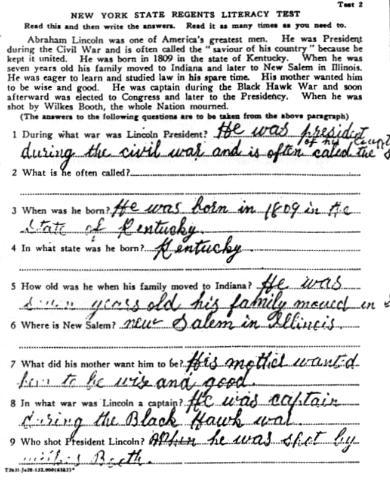 Test 2
NEW YORK STATE REGENTS LITERACY TEST
Read this and then write the answers. Read it as many times as you need to.
Abraham Lincoln was one of America's greatest men. He was President
during the Civil War and is often called the "saviour of his country" because he
kept it united. He was born in 1809 in the state of Kentucky. When he was
seven years old his family moved to Indiana and later to New Salem in Illinois.
He was eager to learn and studied law in his spare time. His mother wanted him
to be wise and good. He was captain during the Black Hawk War and soon
afterward was elected to Congress and later to the Presidency. When he was
shot by Wilkes Booth, the whole Nation mourned.
(The answers to the following questions are to be taken from the above paragraph)
1 During what war was Lincoln President? He was president
of his
during the civil war and is often caled the
2 What is he often called?
3 When was he born? He was born in 1809 in the
State of Kentucky.
4 In what state was he born? Kentucky
5 How old was he when his family moved to Indiana? He was
seven years old his family moved in
6 Where is New Salem? new Salem in Illinois.
7 What did his mother want him to be? His mother wantd
him to be wise and good.
8 In what war was Lincoln a captain? He was captain
during the Black Hawk war
9 Who shot President Lincoln? When he was shot by
Booth.